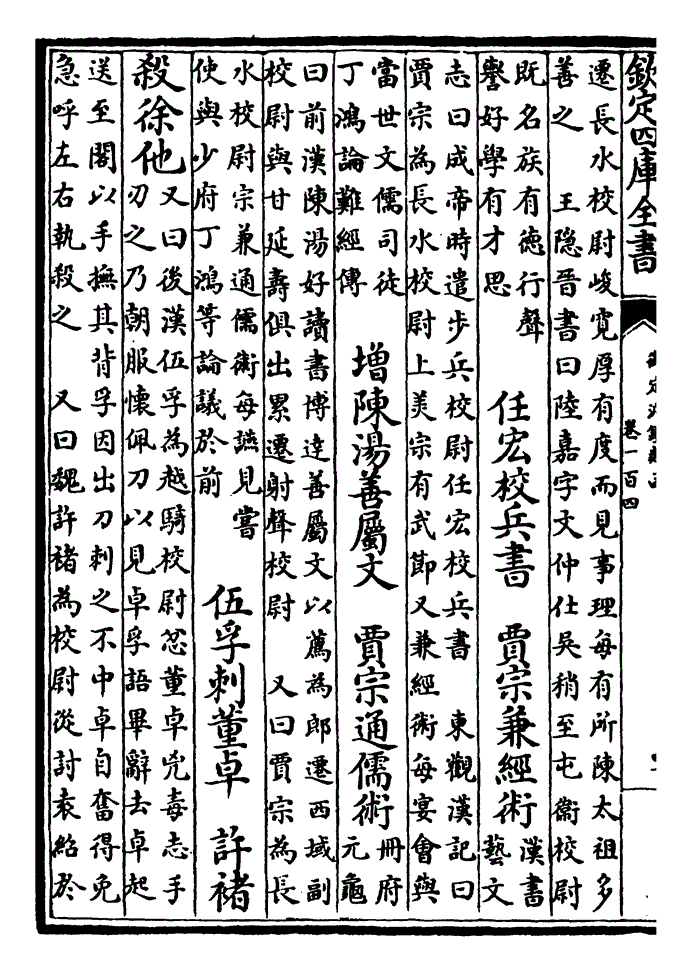 欽定四庫全書
御定淵鑑類函
卷一百四
遷長水校尉峻寬厚有度而見事理每有所陳太祖多
善之　王隱晉書曰陸嘉字文仲仕吳稍至屯衛校尉
既名族有德行聲
譽好學有才思
任宏校兵書　賈宗兼經術
漢書
藝文
志曰成帝時遣步兵校尉任宏校兵書　東觀漢記曰
賈宗為長水校尉上美宗有武節又兼經術每宴會與
當世文儒司徒
丁鴻論難經傳
增陳湯善屬文　賈宗通儒術
冊府
元龜
曰前漢陳湯好讀書博達善屬文以薦為郎遷西域副
校尉與甘延壽俱出累遷射聲校尉　又曰賈宗為長
水校尉宗兼通儒術每讌見嘗
使與少府丁鴻等論議於前
伍孚刺董卓　許褚
殺徐他
又曰後漢伍孚為越騎校尉忿董卓兇毒志手
刃之乃朝服懷佩刀以見卓孚語畢辭去卓起
送至閤以手撫其背孚因出刀刺之不中卓自奮得免
急呼左右執殺之　又曰魏許褚為校尉從討袁紹於